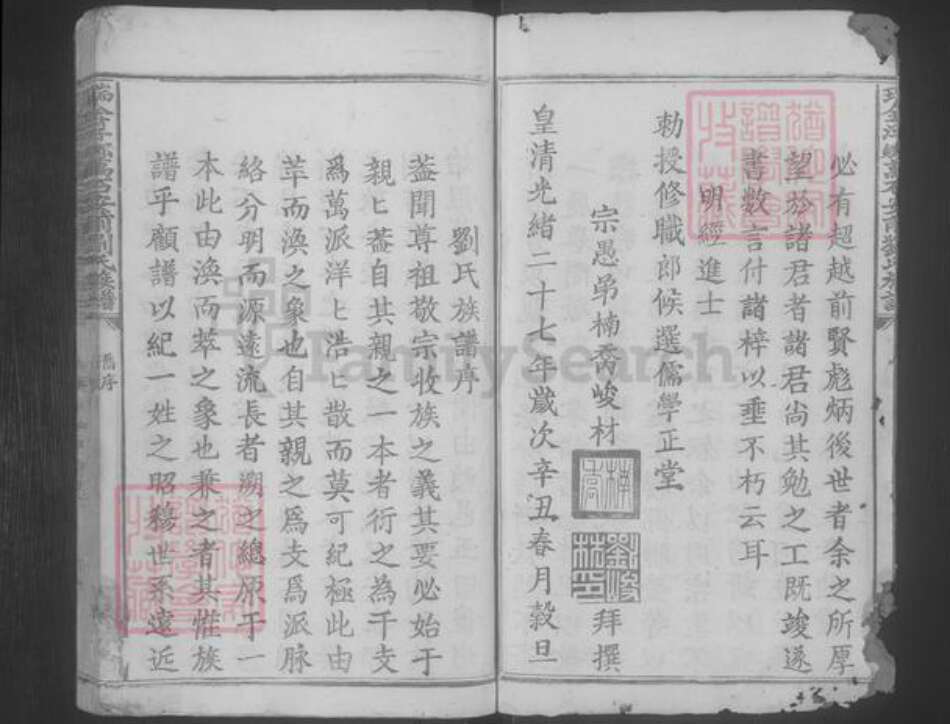 必有超越前賢彪炳後世者余之所厚
望於諸君者諸君尚其勉之工既竣遂
書數言付諸梓以垂不朽云耳
明經進士
勅授修職郎候選儒學正堂
宗愚弟楠喬峻材 拜撰
劉峻材印
皇清光緒二十七年歲次辛丑春月穀旦
劉氏族譜序
葢聞尊祖敬宗收族之義其要必始于
親匕葢自其親之一本者衍之為千支
爲萬派洋匕浩匕散而莫可紀極此由
萃而渙之象也自其親之爲支爲派脉
絡分明而源遠流長者溯之總原于一
本此由渙而萃之象也兼之者其惟族
譜乎顧譜以紀一姓之昭穆世系遠近
舊序
FamilySearch